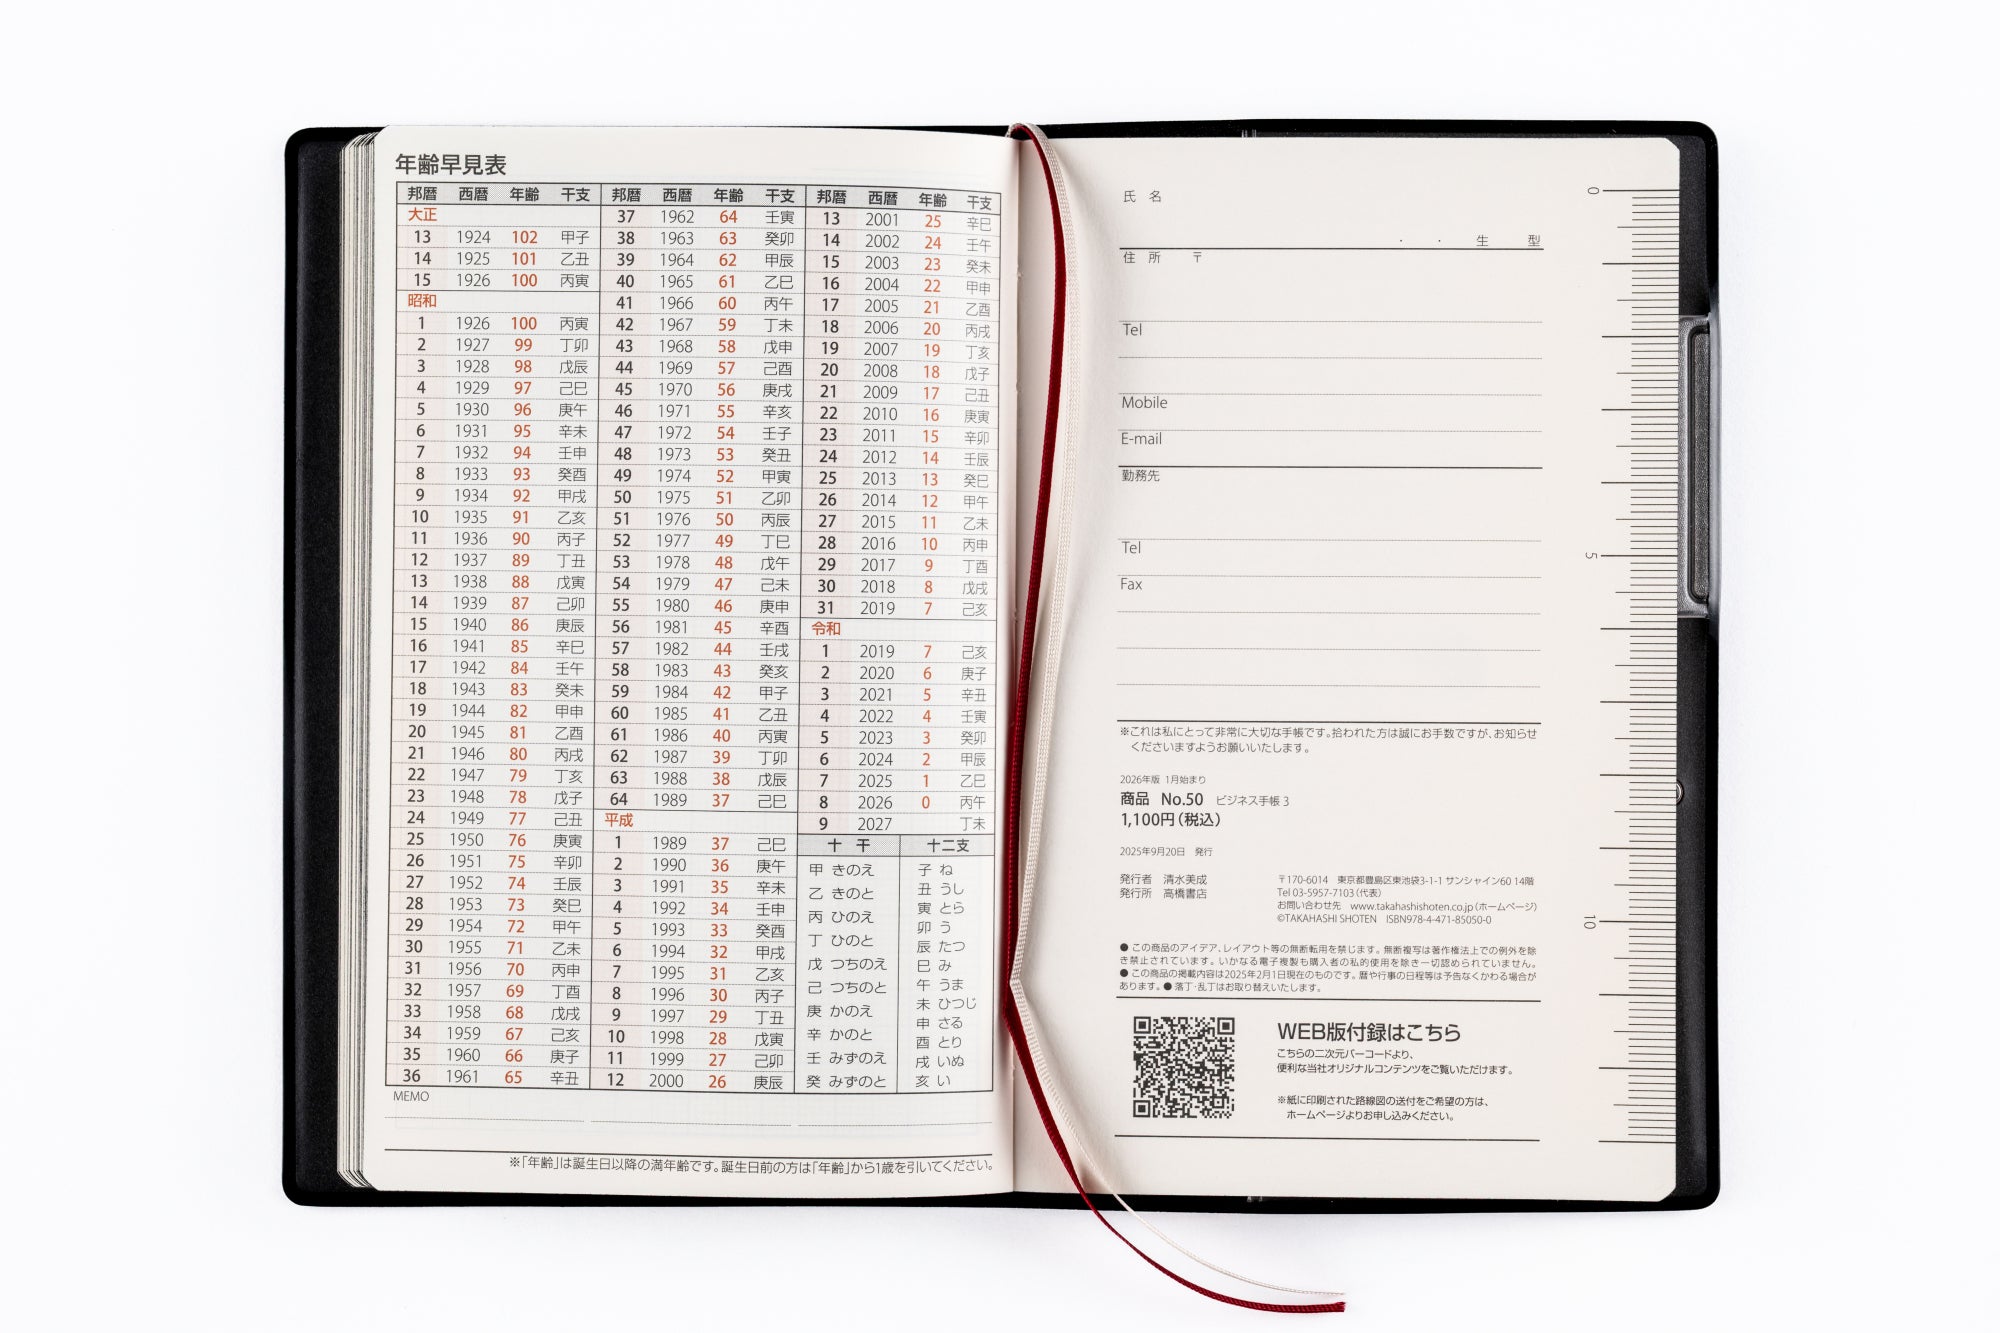 年齢早見表
邦暦 西暦 年齢 干支
大正
13 1924 102 甲子
14 1925 101 乙丑
15 1926 100 丙寅
昭和
1 1926 100 丙寅
2 1927 99 丁卯
3 1928 98 戊辰
4 1929 97 己巳
5 1930 96 庚午
6 1931 95 辛未
7 1932 94 壬申
8 1933 93 癸酉
9 1934 92 甲戌
10 1935 91 乙亥
11 1936 90 丙子
12 1937 89 丁丑
13 1938 88 戊寅
14 1939 87 己卯
15 1940 86 庚辰
16 1941 85 辛巳
17 1942 84 壬午
18 1943 83 癸未
19 1944 82 甲申
20 1945 81 乙酉
21 1946 80 丙戌
22 1947 79 丁亥
23 1948 78 戊子
24 1949 77 己丑
25 1950 76 庚寅
26 1951 75 辛卯
27 1952 74 壬辰
28 1953 73 癸巳
29 1954 72 甲午
30 1955 71 乙未
31 1956 70 丙申
32 1957 69 丁酉
33 1958 68 戊戌
34 1959 67 己亥
35 1960 66 庚子
36 1961 65 辛丑
邦暦 西暦 年齢 干支
37 1962 64 壬寅
38 1963 63 癸卯
39 1964 62 甲辰
40 1965 61 乙巳
41 1966 60 丙午
42 1967 59 丁未
43 1968 58 戊申
44 1969 57 己酉
45 1970 56 庚戌
46 1971 55 辛亥
47 1972 54 壬子
48 1973 53 癸丑
49 1974 52 甲寅
50 1975 51 乙卯
51 1976 50 丙辰
52 1977 49 丁巳
53 1978 48 戊午
54 1979 47 己未
55 1980 46 庚申
56 1981 45 辛酉
57 1982 44 壬戌
58 1983 43 癸亥
59 1984 42 甲子
60 1985 41 乙丑
61 1986 40 丙寅
62 1987 39 丁卯
63 1988 38 戊辰
64 1989 37 己巳
平成
1 1989 37 己巳
2 1990 36 庚午
3 1991 35 辛未
4 1992 34 壬申
5 1993 33 癸酉
6 1994 32 甲戌
7 1995 31 乙亥
8 1996 30 丙子
9 1997 29 丁丑
10 1998 28 戊寅
11 1999 27 己卯
12 2000 26 庚辰
邦暦 西暦 年齢 干支
13 2001 25 辛巳
14 2002 24 壬午
15 2003 23 癸未
16 2004 22 甲申
17 2005 21 乙酉
18 2006 20 丙戌
19 2007 19 丁亥
20 2008 18 戊子
21 2009 17 己丑
22 2010 16 庚寅
23 2011 15 辛卯
24 2012 14 壬辰
25 2013 13 癸巳
26 2014 12 甲午
27 2015 11 乙未
28 2016 10 丙申
29 2017 9 丁酉
30 2018 8 戊戌
31 2019 7 己亥
令和
1 2019 7 己亥
2 2020 6 庚子
3 2021 5 辛丑
4 2022 4 壬寅
5 2023 3 癸卯
6 2024 2 甲辰
7 2025 1 乙巳
8 2026 0 丙午
9 2027 丁未
十干
甲 きのえ
乙 きのと
丙 ひのえ
丁 ひのと
戊 つちのえ
己 つちのと
庚 かのえ
辛 かのと
壬 みずのえ
癸 みずのと
十二支
子 ね
丑 うし
寅 とら
卯 う
辰 たつ
巳 み
午 うま
未 ひつじ
申 さる
酉 とり
戌 いぬ
亥 い
MEMO
※「年齢」は誕生日以降の満年齢です。誕生日前の方は「年齢」から1歳を引いてください。
氏 名
・ ・ 生 型
住 所 〒
Tel
Mobile
E-mail
勤務先
Tel
Fax
※これは私にとって非常に大切な手帳です。拾われた方は誠にお手数ですが、お知らせ
くださいますようお願いいたします。
2026年版 1月始まり
商品 No.50 ビジネス手帳 3
1,100円(税込)
2025年9月20日 発行
発行者 清水美成
発行所 高橋書店
〒170-6014 東京都豊島区東池袋3-1-1 サンシャイン60 14階
Tel 03-5957-7103(代表)
お問い合わせ先 www.takahashishoten.co.jp(ホームページ)
©TAKAHASHI SHOTEN ISBN978-4-471-85050-0
● この商品のアイデア、レイアウト等の無断転用を禁じます。無断複写は著作権法上での例外を除
き禁止されています。いかなる電子複製も購入者の私的使用を除き一切認められていません。
● この商品の掲載内容は2025年2月1日現在のものです。暦や行事の日程等は予告なくかわる場合が
あります。● 落丁・乱丁はお取り替えいたします。
WEB版付録はこちら
こちらの二次元バーコードより、
便利な当社オリジナルコンテンツをご覧いただけます。
※紙に印刷された路線図の送付をご希望の方は、
ホームページよりお申し込みください。
0
5
10